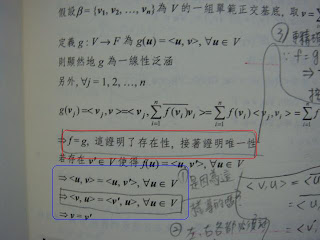 假設β = {v₁, v₂, …, vₙ} 為 V 的一組單範正交基底，取 v =
定義 g : V → F 為 g(u) = <u, v>, ∀u ∈ V
則顯然地 g 為一線性泛函
另外，∀j = 1, 2, …, n
g(vⱼ) = <vⱼ, v> = <vⱼ, \sum_{i=1}^{n} \overline{f(vᵢ)}vᵢ> = \sum_{i=1}^{n} f(vᵢ)<vⱼ, vᵢ> =
⇒ f = g, 這證明了存在性，接著證明唯一性
若存在 v' ∈ V 使得 f(u) = <u, v'>, ∀u ∈ V
⇒ <u, v> = <u, v'>, ∀u ∈ V
⇒ <v, u> = <v', u>, ∀u ∈ V
⇒ v = v'
③
∵ f = g
①
是因為
<v, u> =
②